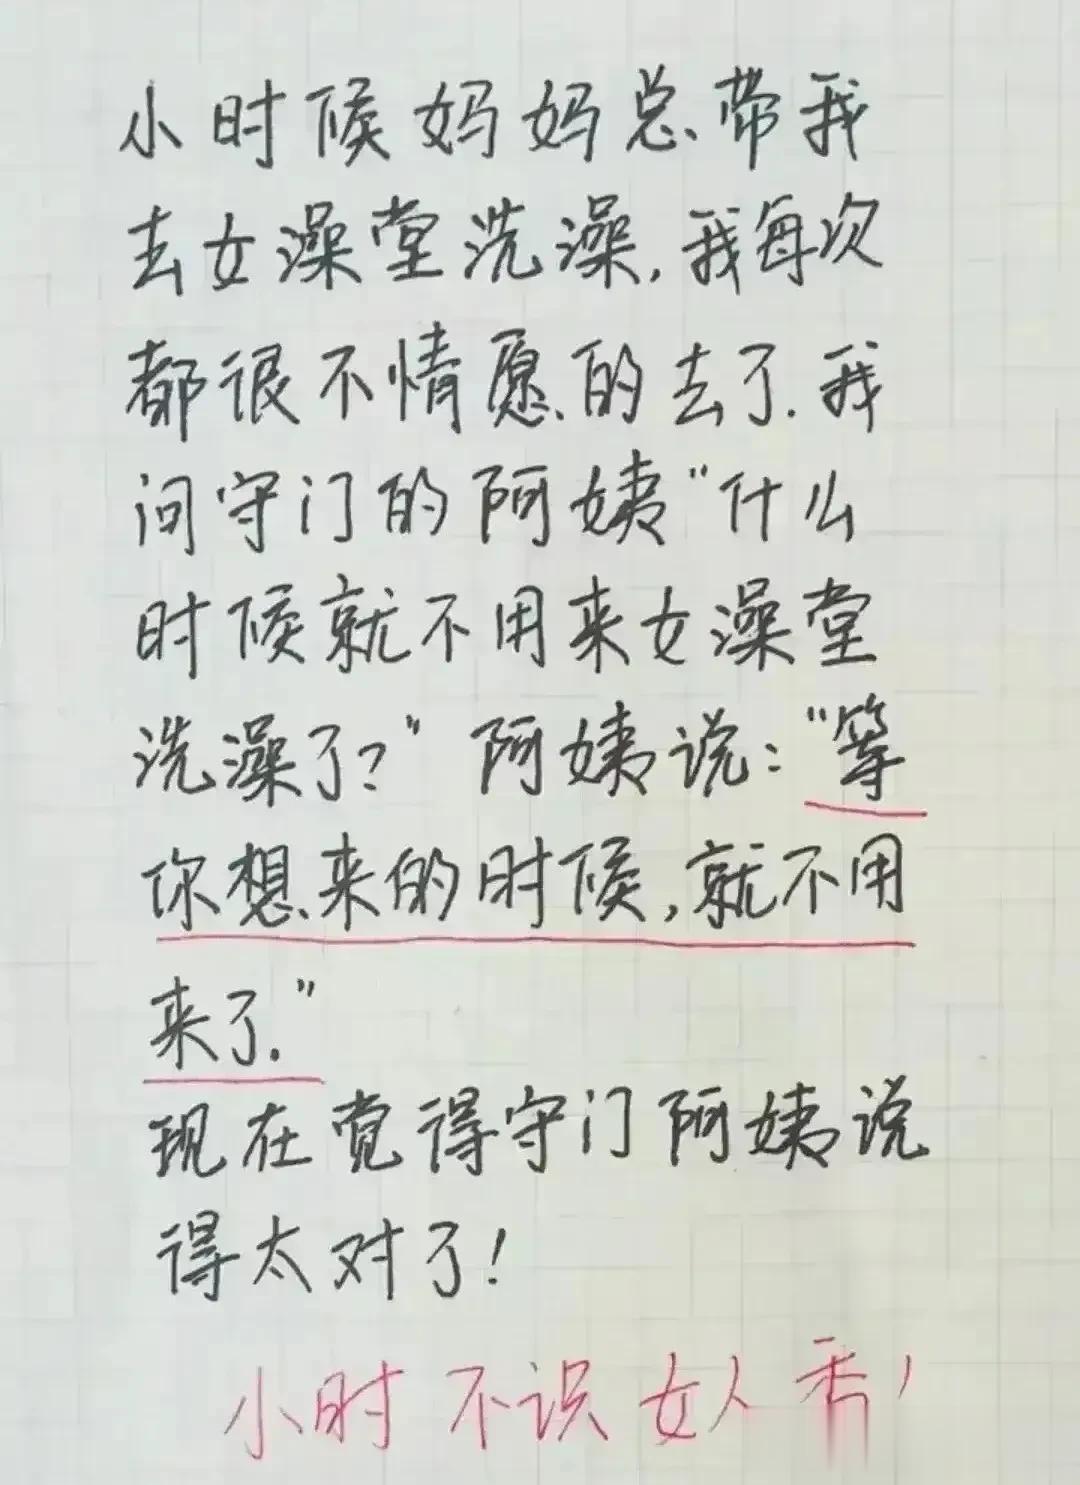 小时候妈妈总带我
去女澡堂洗澡,我每次
都很不情愿的去了.我
问守门的阿姨“什么
时候就不用来女澡堂
洗澡了?”阿姨说:“等
你想来的时候,就不用
来了.”
现在觉得守门阿姨说
得太对了!
小时不识女人香!